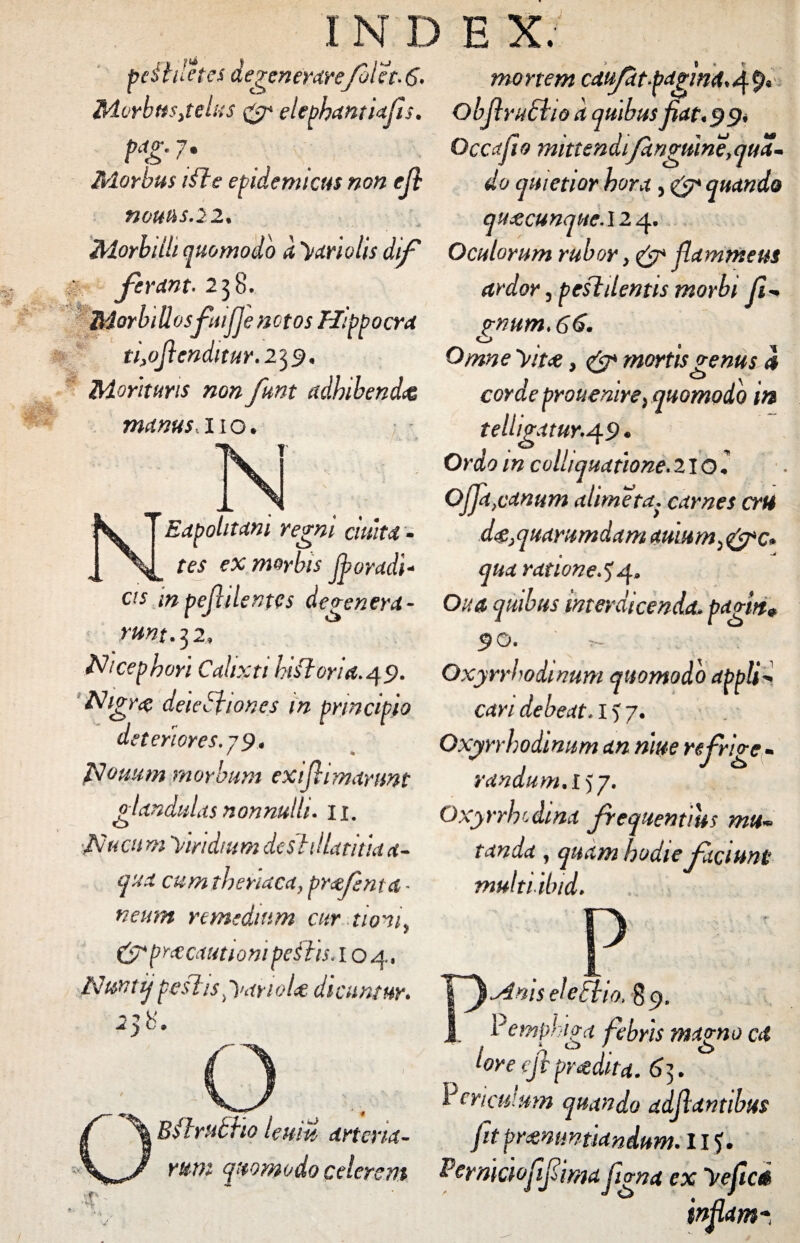 INDEX.
pestilētes degenerare solet. 6.
Morbus, telus & elephantiasis.
pag. 7.
Morbus iste epidemicus non est
nouus. 22.
Morbilli quomodo à variolis dif
ferant. 238.
Morbillos fuisse notos Hippocra
ti, ostenditur. 239.
Morituris non sunt adhibendæ
manus. 110.
N
NEapolitani regni ciuita-
tes ex morbis sporadi-
cis in pestilentes degenera-
runt. 32.
Nicephori Calixti historia. 49.
Nigræ deiectiones in principio
deteriores. 79.
Nouum morbum existimarunt
glandulas nonnulli. 11.
Nucum viridium destillatitia a-
qua cum theriaca, præsenta-
neum remedium curationi,
& præcautioni pestis. 104.
Nuntij pestis, variolæ dicuntur.
238.
O
OBstructio leuiū arteria-
rum quomodo celerem
mortem causat. pagina. 49.
Obstructio à quibus fiat. 99.
Occasio mittendi sanguinē, quā-
do quietior hora, & quando
quæcunque. 124.
Oculorum rubor, & flammeus
ardor, pestilentis morbi si-
gnum. 66.
Omne vitæ, & mortis genus à
corde prouenire, quomodo in
telligatur. 49.
Ordo in colliquatione. 210.
Ossa, canum alimēta, carnes cru
dæ, quarumdam auium, &c.
qua ratione. 54.
Oua quibus interdicenda. pagin.
90.
Oxyrrhodinum quomodo appli-
cari debeat. 157.
Oxyrrhodinum an niue refrige-
randum. 157.
Oxyrrhodina frequentius mu-
tanda, quàm hodie faciunt
multi. ibid.
P
PAnis electio. 89.
Pemphiga febris magno ca
lore est prædita. 63.
Periculum quando adstantibus
sit prænuntiandum. 115.
Perniciosissima signa ex vesicæ
inflam-